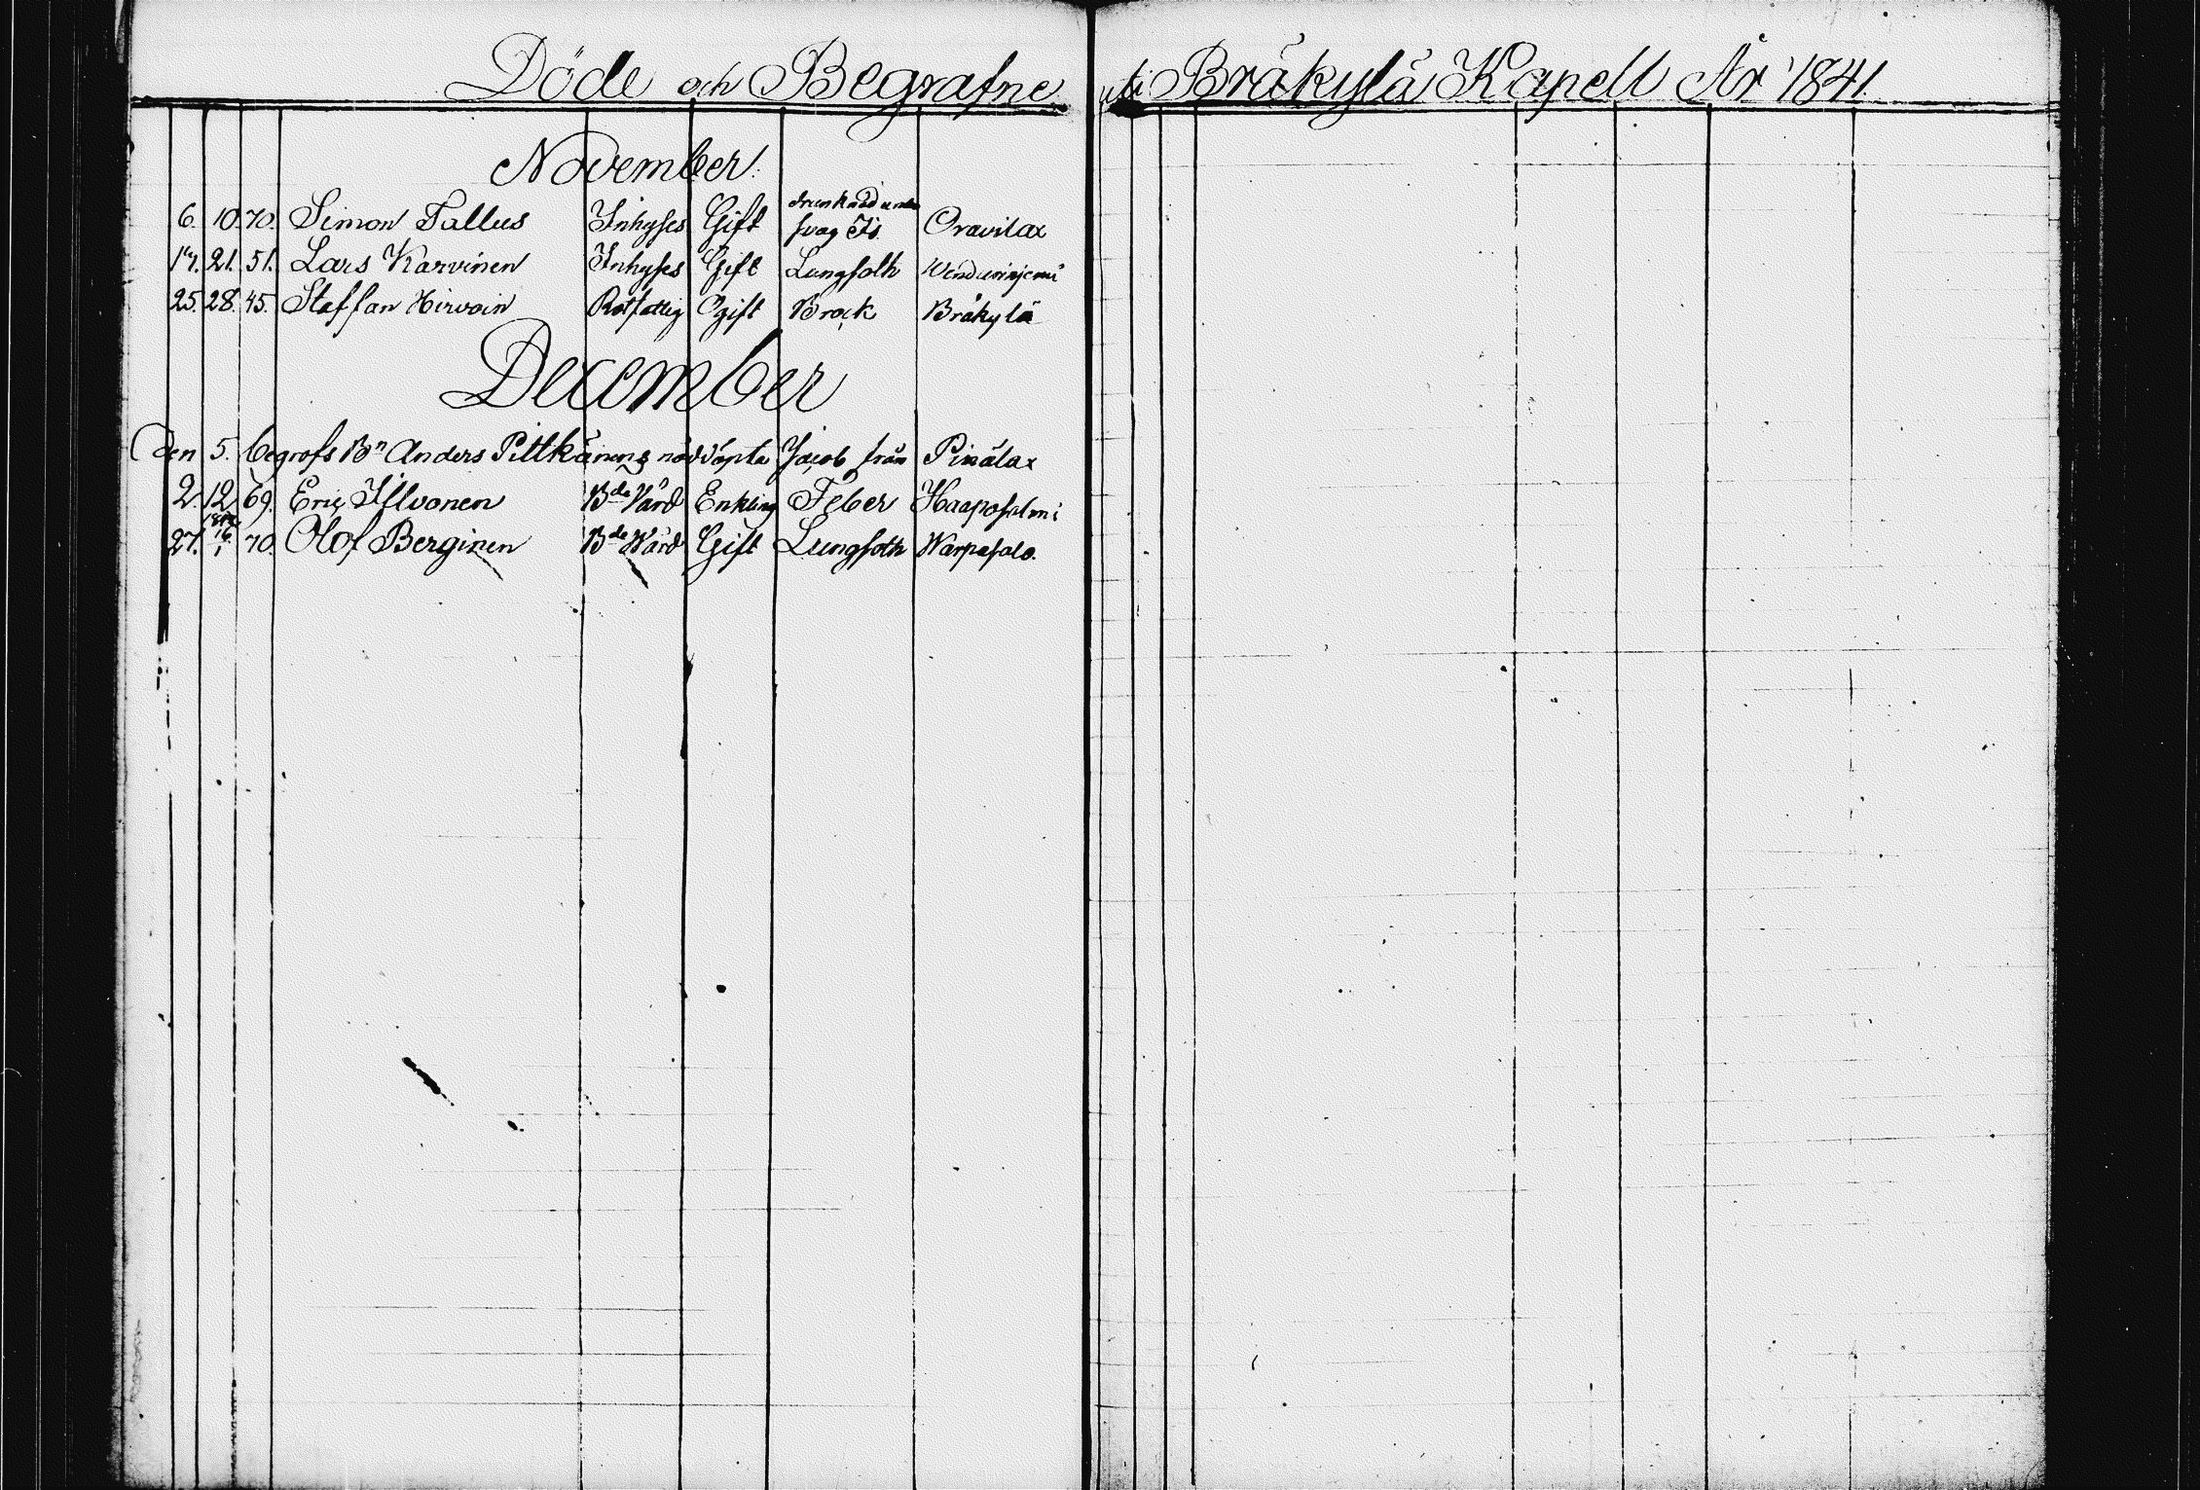 Döde och Begrafne uti Bräkylä Kapell År 1841.
November.
6. 10. 70. Simon Tallus Inhyses Gift drunknad under svag Is. Oravilax
17. 21. 51. Lars Karvinen Inhyses Gift Lungsoth
25. 28. 45. Staffan Hirvoin Rotfattig Ogift Bråck Bräkylä
December
Den 5. begrofs Bn Anders Pittkänens nöddöpta Jacob från Pinälax
2. 12 69. Eric Ilvonen Bde Värd Enkling Feber Haaposalmi
27. 1842 16/1 70. Olof Berginen Bde Wärd Gift Lungsoth Warpasalo.